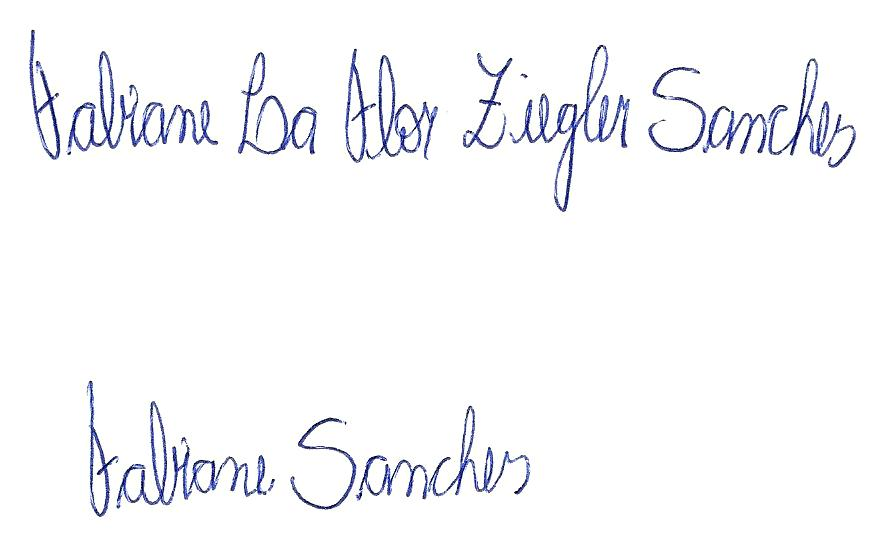 Fabiane La Flor Ziegler Sanches
Fabiane Sanches